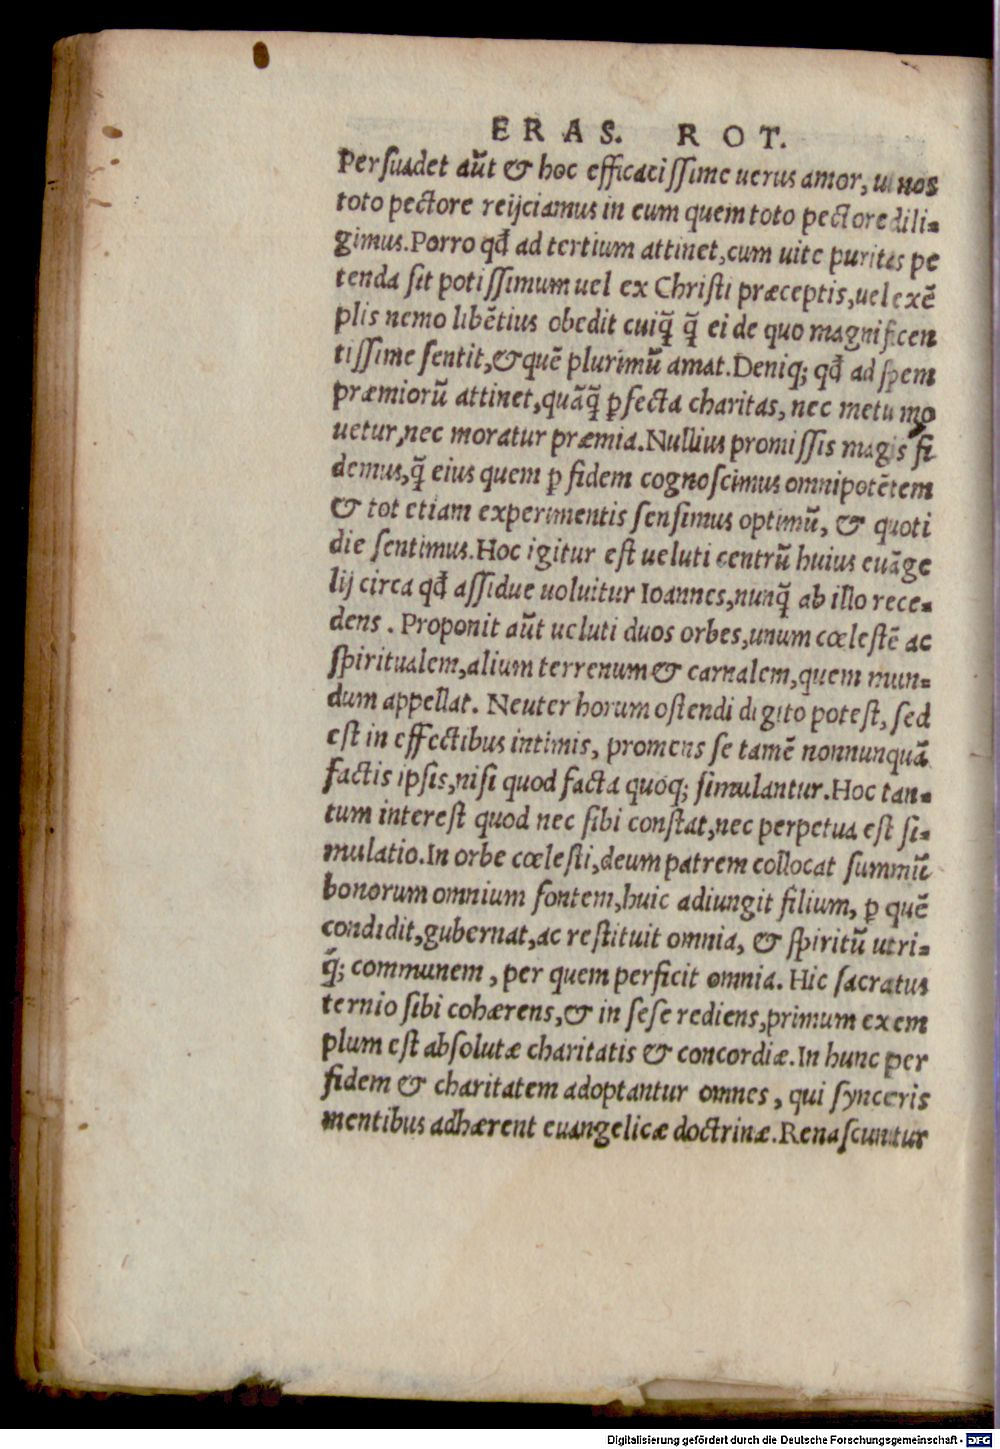 ERAS. ROT.
Persuadet aūt & hoc efficacissime uerus amor, ut nos
toto pectore reijciamus in eum quem toto pectore dili-
gimus. Porro qđ ad tertium attinet, cum uite puritas pe
tenda sit potissimum uel ex Christi præceptis, uel exē
plis nemo libētius obedit cuiq̄ q̄ ei de quo magnificen
tissime sentit, & quē plurimū amat. Deniq; qđ ad spem
præmiorū attinet, quāq̄ ꝑfecta charitas, nec metu mo
uetur, nec moratur præmia. Nullius promissis magis fi
demus, q̄ eius quem ꝑ fidem cognoscimus omnipotētem
& tot etiam experimentis sensimus optimū, & quoti
die sentimus. Hoc igitur est ueluti centrū huius euāge
lij circa qđ assidue uoluitur Ioannes, nunq̄ ab illo rece-
dens. Proponit aūt ueluti duos orbes, unum cœlestē ac
spiritualem, alium terrenum & carnalem, quem mun-
dum appellat. Neuter horum ostendi digito potest, sed
est in effectibus intimis, promens se tamē nonnunquā
factis ipsis, nisi quod facta quoq; simulantur. Hoc tan-
tum interest quod nec sibi constat, nec perpetua est si-
mulatio. In orbe cœlesti, deum patrem collocat summū
bonorum omnium fontem, huic adiungit filium, ꝑ quē
condidit, gubernat, ac restituit omnia, & spiritū utri-
q́; communem, per quem perficit omnia. Hic sacratus
ternio sibi cohærens, & in sese rediens, primum exem
plum est absolutæ charitatis & concordiæ. In hunc per
fidem & charitatem adoptantur omnes, qui synceris
mentibus adhærent euangelicæ doctrinæ. Renascuntur
Digitalisierung gefördert durch die Deutsche Forschungsgemeinschaft - DFG